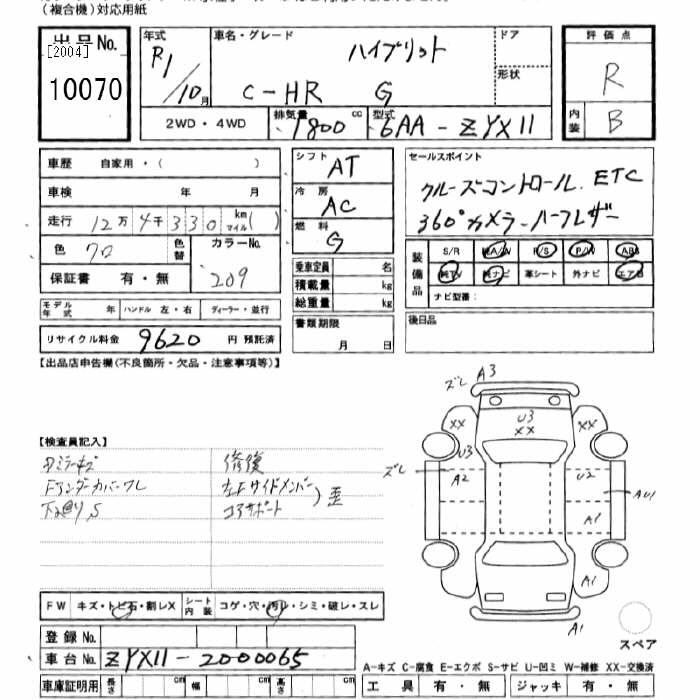 (複合機)対応用紙
出品No. [2004] 10070
年式 R1/10月
車名・グレード ハイブリット C-HR G
ドア
形状
2WD・4WD 排気量 1800 cc 型式 6AA-ZYX11
評価点 R
内装 B
車歴 自家用・( )
車検 年 月
走行 12万4千330 km マイル( )
色 クロ 色替 カラーNo. 209
保証書 有・無
シフト AT
冷房 AC
燃料 G
乗車定員 名
積載量 kg
総重量 kg
書類期限 月 日
セールスポイント
クルーズコントロール. ETC
360°カメラ-ハーフレザー
装備品 S/R A/W P/S P/W ABS
純TV 純ナビ 革シート 外ナビ エアB
ナビ型番:
後日品
モデル年式 年 ハンドル 左・右 ディーラー・並行
リサイクル料金 9620 円 預託済
【出品店申告欄(不良箇所・欠品・注意事項等)】
【検査員記入】
Fアンダーカバーワレ
下廻りS
修復
左Fサイドメンバー
コアサポート
歪
ズレ A3
U3
XX
XX XX
U3
ズレ A2 U2
AU1
A1
A1
A1
スペア
FW キズ・トビ石・割レX シート内装 コゲ・穴・汚レ・シミ・破レ・スレ
登録No.
車台No. ZYX11-2000065
車庫証明用 長さ cm 幅 cm 高さ cm
A-キズ C-腐食 E-エクボ S-サビ U-凹ミ W-補修 XX-交換済
工具 有・無 ジャッキ 有・無